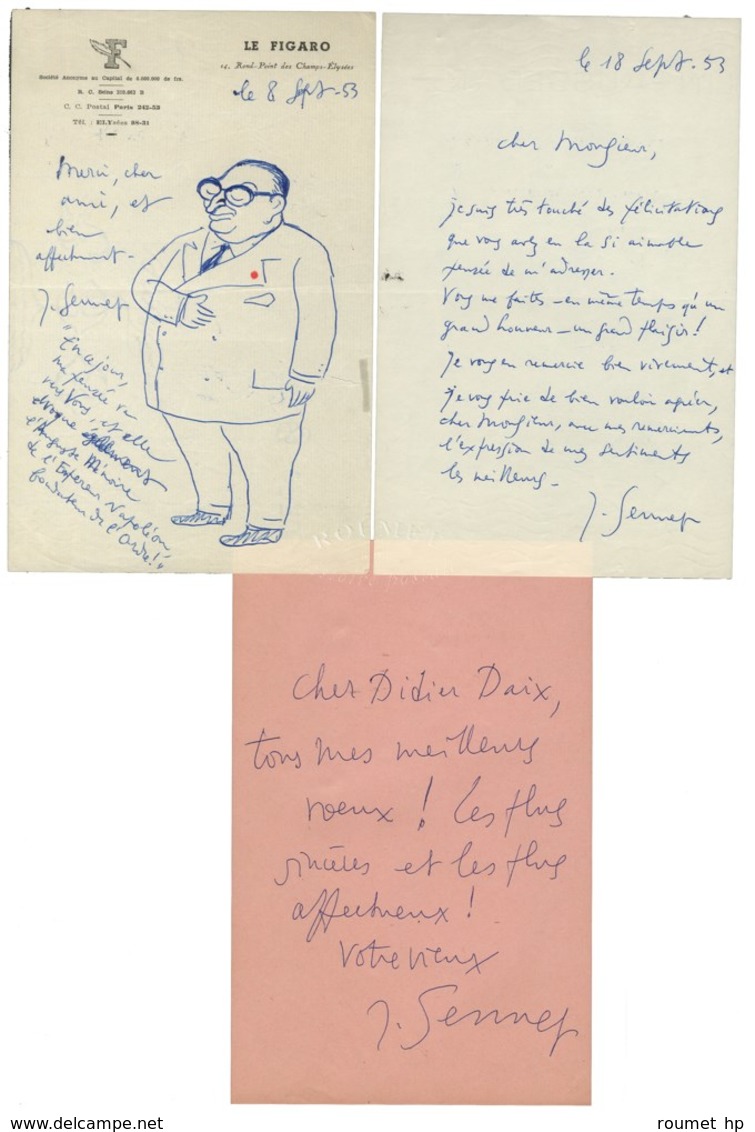 F
LE FIGARO
14, Rond-Point des Champs-Élysées
Société Anonyme au Capital de 6.000.000 de frs.
R. C. Seine 219.963 B
C. C. Postal Paris 242-53
Tél. : ELYsées 98-31
le 8 Sept-53
Merci, cher
ami, et
bien
affectueust-
J. Sennep
"En ce jour,
ma pensée va
vers Vous, et elle
évoque également
l'Auguste Mémoire
de l'Empereur Napoléon,
fondateur de l'Ordre!"
le 18 Sept-53
cher Monsieur,
je suis très touché des félicitations
que vous avez eu la si aimable
pensée de m'adresser.
Vous me faites - en même temps qu'un
grand honneur - un grand plaisir!
Je vous en remercie bien vivement, et
je vous prie de bien vouloir agréer,
cher Monsieur, avec mes remerciements,
l'expression de mes sentiments
les meilleurs-
J. Sennep
ROUMET
cher Didier Daix,
tous mes meilleurs
voeux! Les plus
sincères et les plus
affectueux!
Votre vieux
J. Sennep
roumet hp